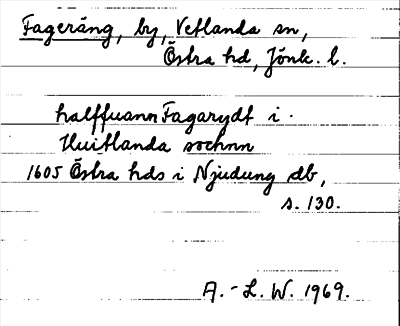 Fageräng, by, Vetlanda sn,
Östra hd, Jönk. l.
halffuann Fagarydt i
Huitlanda sochnn
1605 Östra hds i Njudung db,
s. 130.
A.-L. W. 1969.